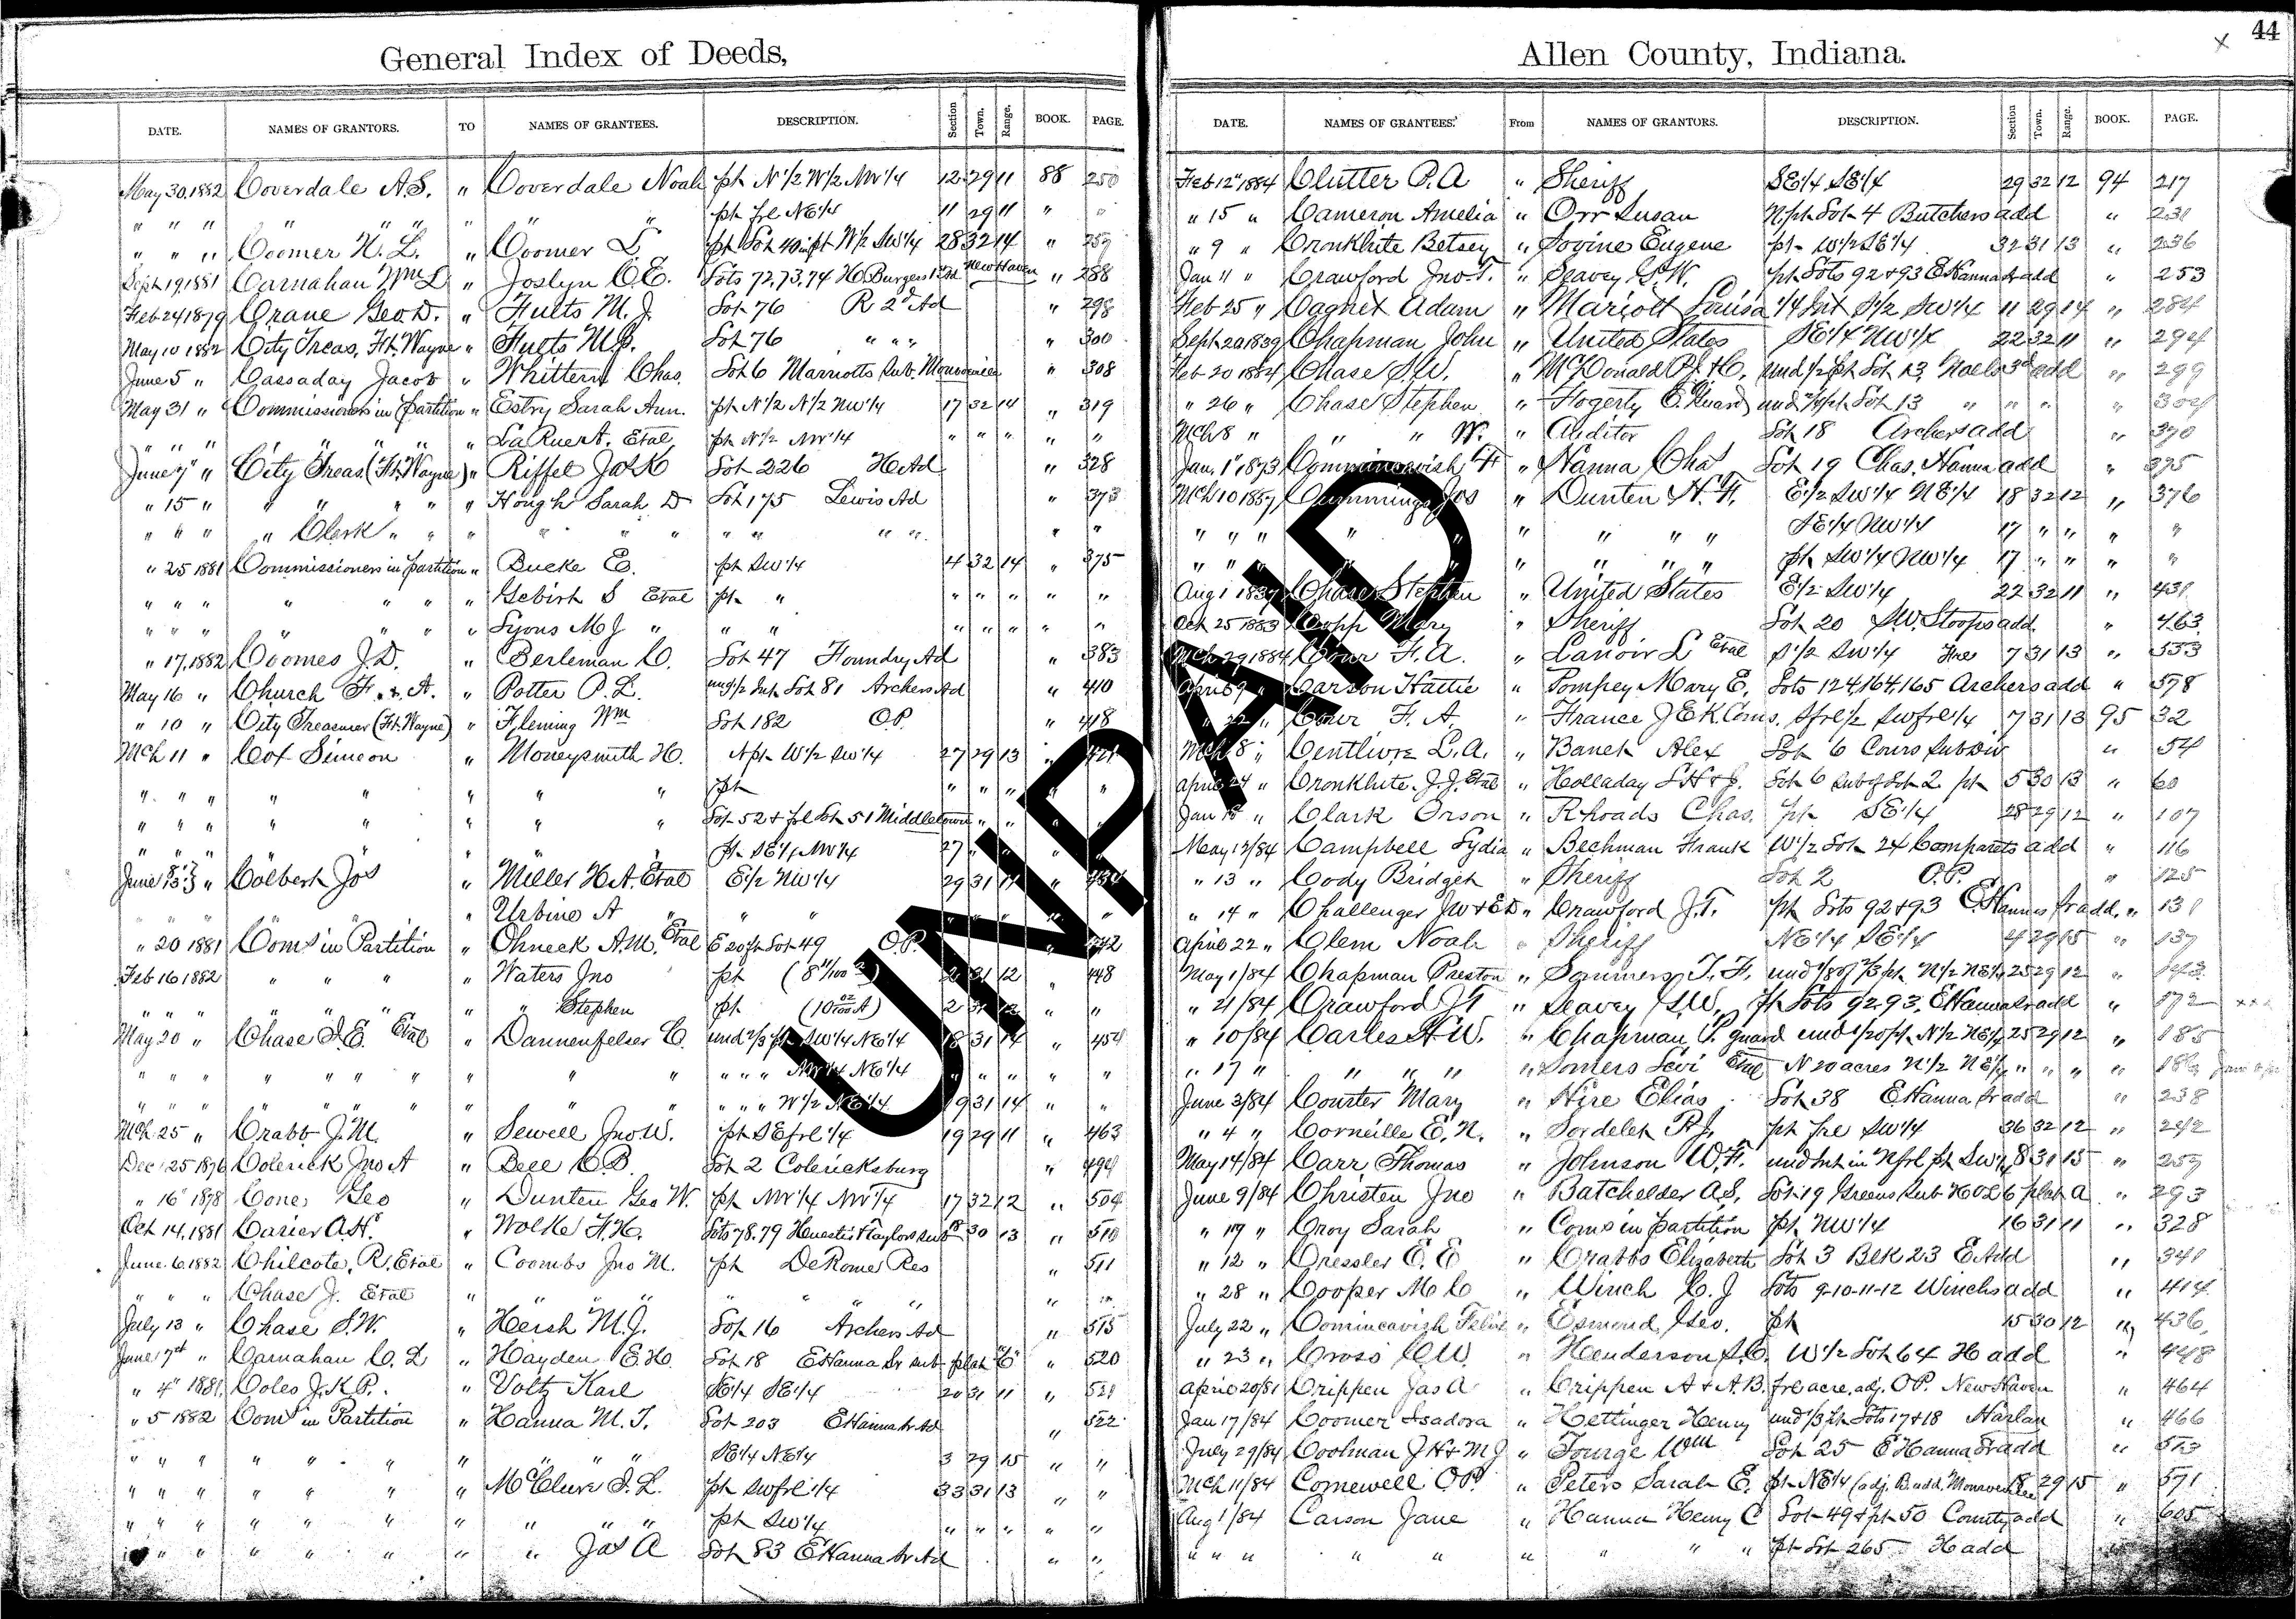 44
General Index of Deeds,
DATE. NAMES OF GRANTORS. TO NAMES OF GRANTEES. DESCRIPTION. Section Town. Range. BOOK. PAGE.
May 30, 1882 Coverdale A.S. " Coverdale Noah pt N 1/2 W 1/2 NW 1/4 12 29 11 88 250
" " " " " " " " pt frl NE 1/4 11 29 11 " "
" " " Coomer N. L. " Coomer L pt W 1/2 SW 1/4 28 32 14 "
Sept 19, 1881 Carnahan Wm L " Joslyn C. E. Lots 72,73,74 H Burgess 1st Ad New Haven " 288
Feb 24 1879 Crane Geo D. " Fults M. J. Lot 76 R 2d Ad " 298
May 10 1882 City Treas, Ft. Wayne " Fults M.J. Lot 76 " " " " 300
June 5 " Cassaday Jacob " Whittern Chas. Lot 6 Marriotts Sub. Monroeville " 308
May 31 " Commissioners in Partition " Estry Sarah Ann. pt N 1/2 N 1/2 NW 1/4 17 32 14 " 319
" " " " " " " Etal pt N 1/2 NW 1/4 " " " " "
June 7" " City Treas. (Ft. Wayne) " Riffel Jos K Lot 226 H Ad " 328
" 15 " " " " " " Hough Sarah D Lot 175 Lewis Ad " 373
" " " " Clerk " " " " " " " " " " " "
" 25 1881 Commissioners in Partition " Bueke E. pt SW 1/4 4 32 14 " 375
" " " " " " " Gebirt S Etal pt " " " " " "
" " " " " " " Lyons M J " " " " " " " "
" 17, 1882 Coomes J. D. " Berleman C. Lot 47 Foundry Ad " 383
May 16 " Church F. & A. " Potter P. L. und 1/2 Int Lot 81 Archers Ad " 410
" 10 " City Treasurer (Ft. Wayne) " Fleming Wm Lot 182 O.P. " 418
Mch 11 " Cox Simeon " Moneysmith H. N pt W 1/2 SW 1/4 27 29 13 " 421
" " " " " " " " pt " " " " "
" " " " " " " " Lot 52 & frl Lot 51 Middletown " " " "
" " " " " " " " pt SE 1/4 NW 1/4 27 " "
June 13 " Colbert Jos " Miller H A. Etal E 1/2 NW 1/4 29 31 11 " 434
" " " " " " Urbine A " " " " " "
" 20 1881 Coms in Partition " Ohneck A.M. Etal E 20 ft Lot 49 O.P. " 442
Feb 16 1882 " " " " Waters Jno pt (8 11/100 a) 2 31 12 " 448
" " " " " " " " Stephen pt (10 02/100 A) 2 31 12 " "
May 20 " Chase I. E. Etal " Dannenfelser C. und 2/3 pt SW 1/4 NE 1/4 18 31 14 " 454
" " " " " " " " " " " " NW 1/4 NE 1/4 " " " " "
" " " " " " " " " " " W 1/2 NE 1/4 19 31 14 " "
Mch 25 " Crabb J. M. " Sewell Jno W. pt SE frl 1/4 19 29 11 " 463
Dec 25 1876 Colerick Jno A " Bell C B. Lot 2 Colericksburg " 494
" 16" 1878 Cone, Geo " Dunten Geo W. pt NW 1/4 NW 1/4 17 32 12 " 504
Oct 14, 1881 Carier A. H. " Wolke F. H. Lots 78.79 & Taylors sub 18 30 13 " 510
June 6, 1882 Chilcote, R. Etal " Coombs Jno M. pt DeRome Res " 511
" " " Chase J. Etal " " " " " " " " "
July 13 " Chase S. W. " Hersh M.J. Lot 16 Archers Ad " 515
June 17th " Carnahan C. L " Hayden E. H. Lot 18 E Hanna Sr sub plat "C" " 520
" 4" 1881, Coles J. K. P. " Voltz Karl SE 1/4 SE 1/4 20 31 11 " 521
" 5 1882 Coms in Partition " Hanna M. T. Lot 203 E Hanna Sr Ad " 522
" " " " " " " " " " SE 1/4 NE 1/4 3 29 15 " "
" " " " " " " McClure S. L. pt SW frl 1/4 33 31 13 " "
" " " " " " " " " " pt SW 1/4 " " " " "
" " " " " " " Jas A Lot 83 E Hanna Sr Ad " "
Allen County, Indiana.
DATE. NAMES OF GRANTEES. From NAMES OF GRANTORS. DESCRIPTION. Section Town. Range. BOOK. PAGE.
Feb 12" 1884 Clutter P. A " Sheriff SE 1/4 SE 1/4 29 32 12 94 217
" 15 " Cameron Amelia " Orr Susan N pt Lot 4 Butchers add " 231
" 9 " Cronkhite Betsey " Sovine Eugene pt W 1/2 SE 1/4 32 31 13 " 236
Jan 11 " Crawford Jno T. " Seavey G. W. pt Lots 92 & 93 E Hanna Sr add " 253
Feb 25 " Cagnet Adam " Mariott Louisa 1/4 Int S 1/2 SW 1/4 11 29 14 " 284
Sept 20 1839 Chapman John " United States SE 1/4 NW 1/4 22 32 11 " 294
Feb 20 1884 Chase S. W. " McDonald R. T. & C. und 1/2 pt Lot 13 Noels 3d add " 299
" 26 " Chase Stephen " Fogerty C. Guard und 1/4 pt Lot 13 " " " " 304
Mch 8 " " " W. " Auditor Lot 18 Archers add " 370
Jan. 1" 1873 Commincavish F " Hanna Chas Lot 19 Chas. Hanna add " 375
Mch 10 1857 Cummings Jos " Dunten H. F. E 1/2 SW 1/4 NE 1/4 18 32 12 " 376
" " " " " " " " " SE 1/4 NW 1/4 17 " " " "
" " " " " " " " " pt SW 1/4 NW 1/4 17 " " " "
Aug 1 1837 Chase Stephen " United States E 1/2 SW 1/4 22 32 11 " 431
Oct 25 1883 Copp Mary " Sheriff Lot 20 S.W. Stoops add " 463
Mch 29 1884 Cour F. A. " Lanoir L Etal S 1/2 SW 1/4 Frl 7 31 13 " 553
April 9 " Carson Hattie " Pompey Mary E, Lots 124,164,165 Archers add " 578
" 22 " Cour F. A. " France J E K Coms. S frl 1/2 SW frl 1/4 7 31 13 95 32
Mch 8 " Centlivre L. A. " Banet Alex Lot 6 Cours Subdiv " 54
April 24 " Cronkhite. J. J. Etal " Holladay S H & J. Lot 6 Sub of Lot 2 pt 5 30 13 " 60
Jan 15 " Clark Orson " Rhoads Chas. pt SE 1/4 28 29 12 " 107
May 12/84 Campbell Lydia " Bechman Frank W 1/2 Lot 24 Comparets add " 116
" 13 " Cody Bridget " Sheriff Lot 2 O.P. " 125
" 14 " Challenger JW & E D " Crawford J. T. pt Lots 92 & 93 E Hannas Sr add. " 131
April 22 " Clem Noah " Sheriff NE 1/4 SE 1/4 4 29 15 " 137
May 1/84 Chapman Preston " Sommers T. F. und 1/8 of 2/3 pt N 1/2 NE 1/4 25 29 12 " 143
" 21/84 Crawford J T " Seavey G. W. pt Lots 92.93. E Hanna Sr add " 172 xxx
" 10/84 Carles H W. " Chapman, P. guard und 1/20 pt N 1/2 NE 1/4 25 29 12 " 185
" 17 " " " " " Somers Levi Etal N 20 acres N 1/2 NE 1/4 " " " " 186
June 3/84 Courter Mary " Hire Elias Lot 38 E Hanna Sr add " 238
" 4 " Corneille E. N. " Sordelet P. J. pt frl SW 1/4 36 32 12 " 242
May 14/84 Carr Thomas " Johnson W. F. und Int in N frl pt SW 1/4 8 31 15 " 257
June 9/84 Christen Jno " Batchelder A. S. Lot 19 Greens Sub H O L 6 plat A " 293
" 19 " Croy Sarah " Coms in Partition pt NW 1/4 16 31 11 " 328
" 12 " Cressler E. E " Crabbs Elizabeth Lot 3 Blk 23 E Add " 341
" 28 " Cooper M C " Winch C. J Lots 9-10-11-12 Winchs add " 414
July 22 " Comincavish Felix " Esmond, Geo. pt 15 30 12 " 436
" 23 " Cross C W. " Henderson S. C. W 1/2 Lot 64 H add " 448
April 20/81 Crippen Jas A " Crippen A & A. B. frl acre, adj. O.P. New Haven " 464
Jan 17/84 Coomer Isadora " Hettinger Henry und 1/3 pt Lots 17 & 18 Harlan " 466
July 29/84 Coolman J H & M J " Tourge Wm Lot 25 E Hanna Sr add " 513
Mch 11/84 Cornewell O P. " Peters Sarah E. pt NE 1/4 (adj. B. add. Monroeville) 18 29 15 " 571
Aug 1/84 Carson Jane " Hanna Henry C Lot 49 & pt 50 County add " 605
" " " " " " " " " pt Lot 265 H add
UNPAID